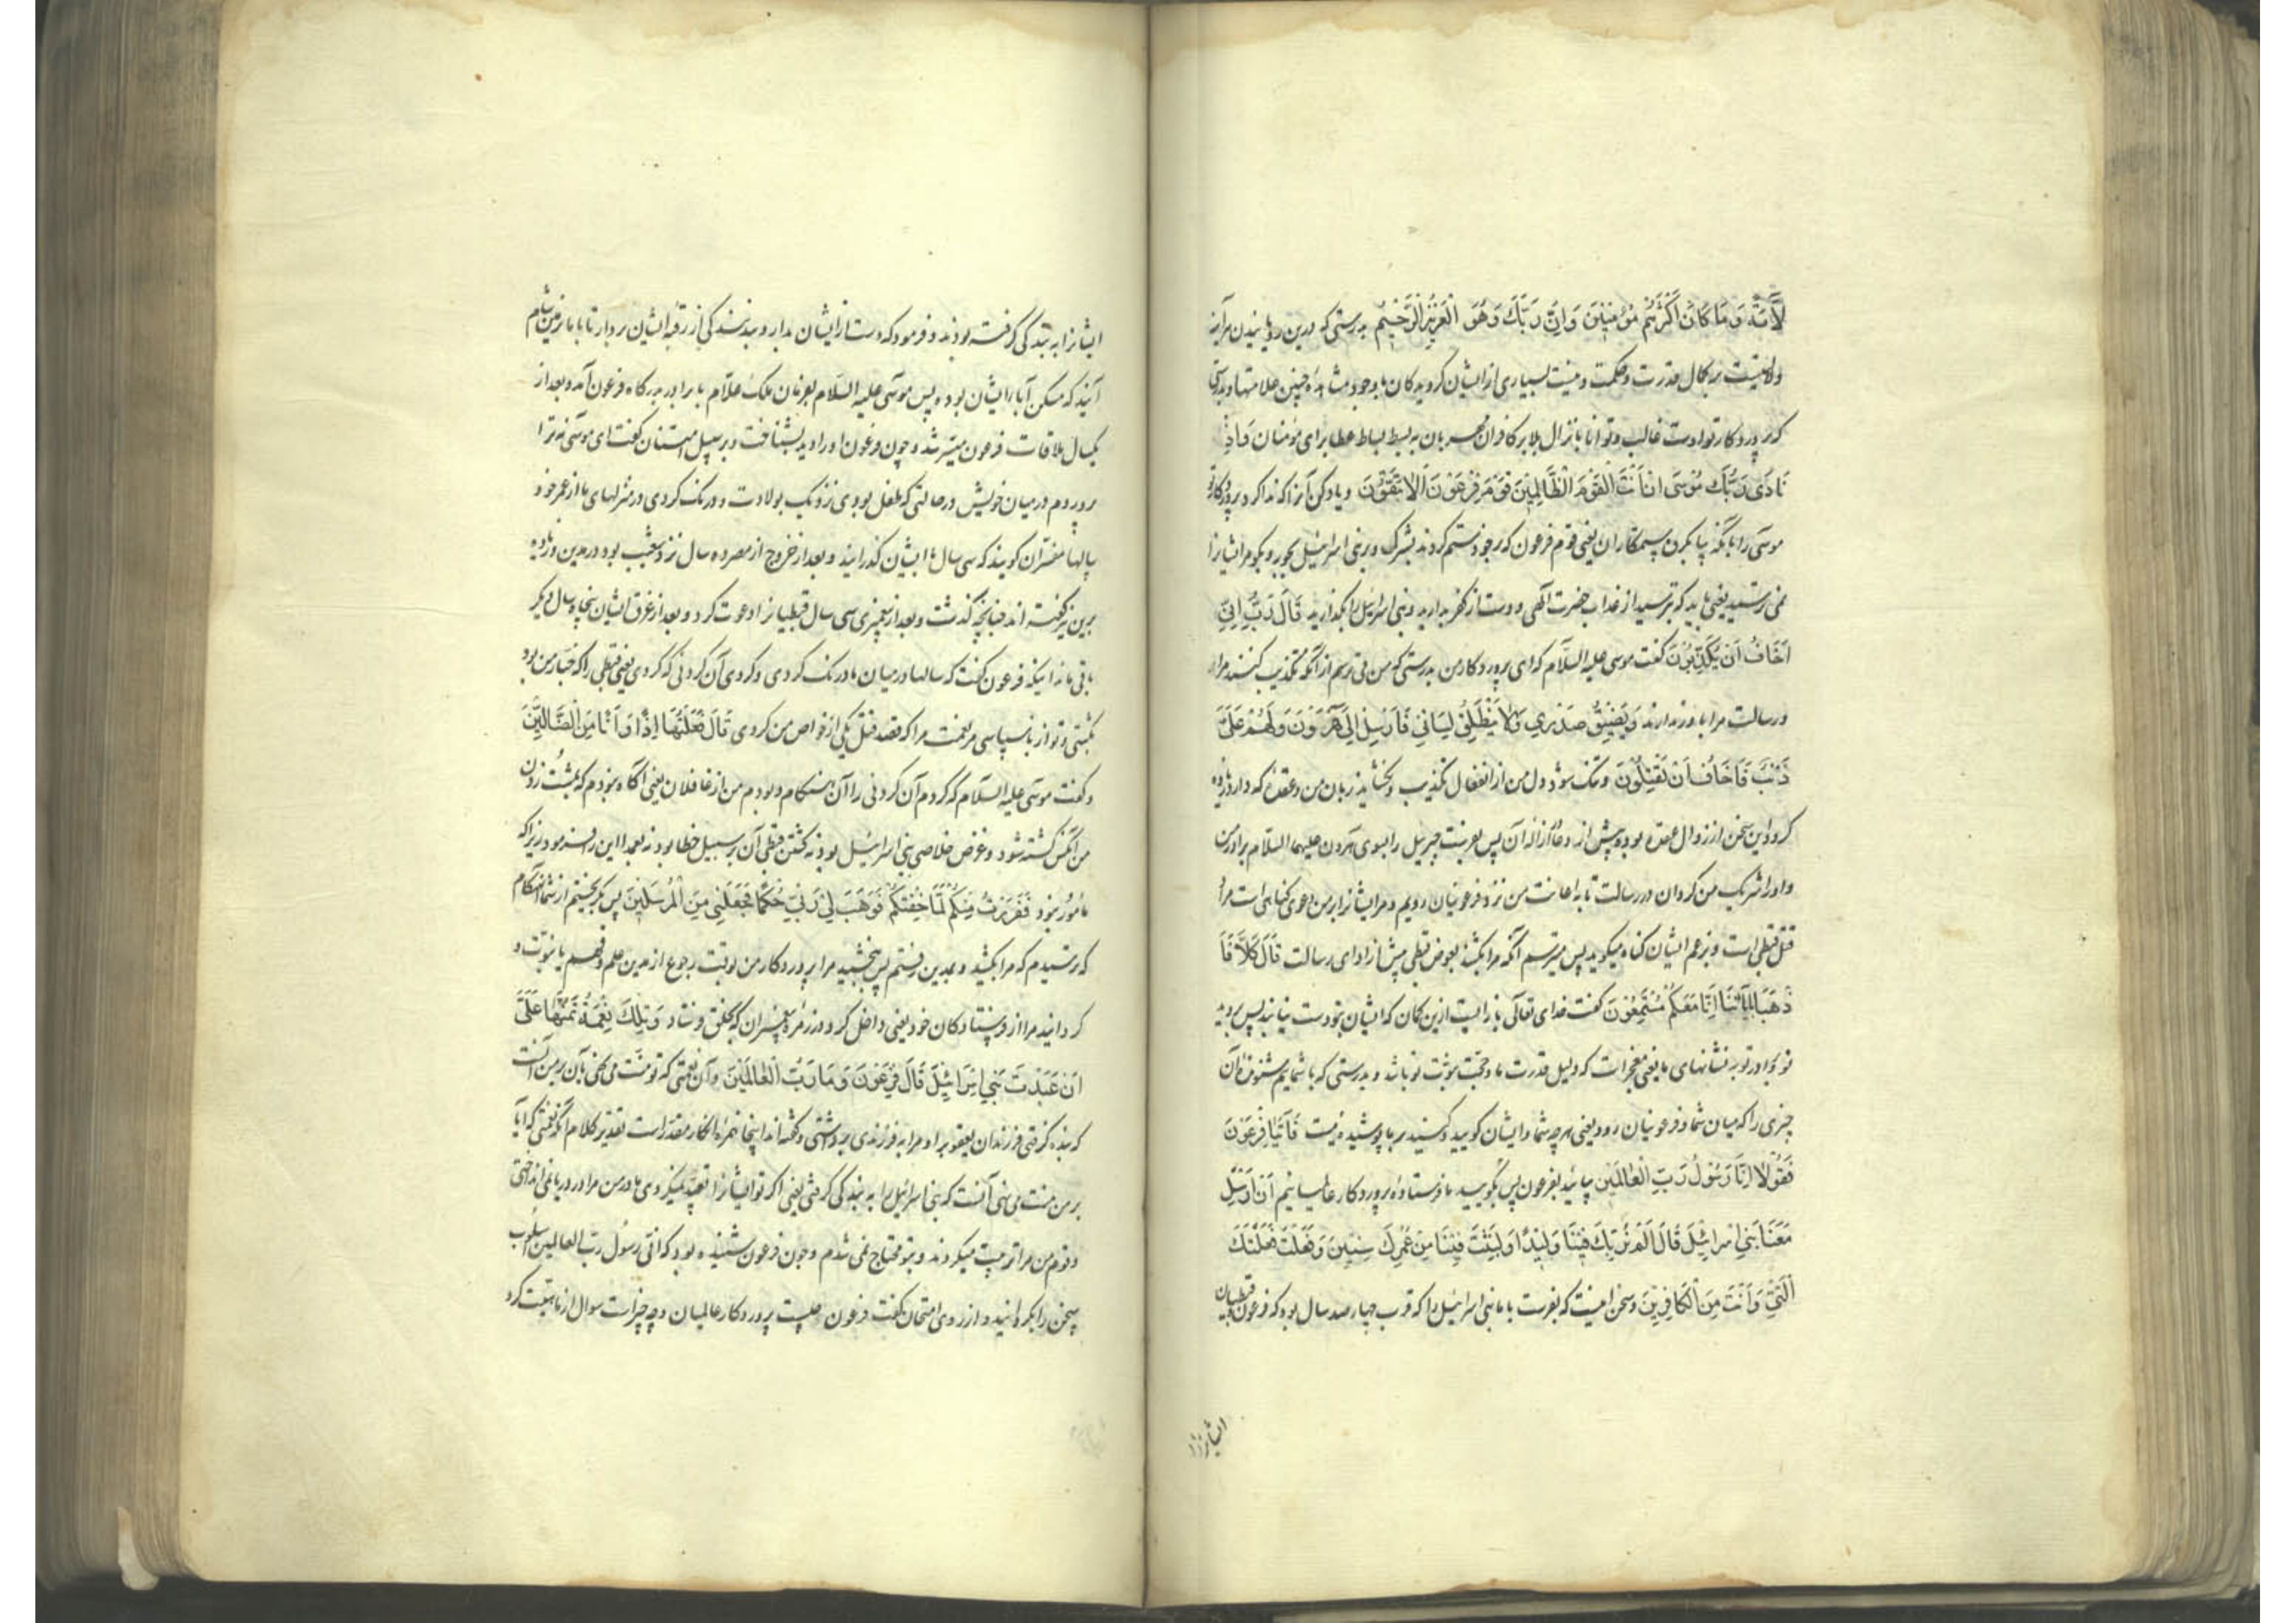 لَآيَةً وَمَا كَانَ اَكْثَرُهُمْ مُؤْمِنِينَ وَاِنَّ رَبَّكَ وَهُوَ الْعَزِيزُ الرَّحِيمُ بدرستی که درین رویانیدن هرآینه
دلالتیست بر کمال قدرت و حکمت و نیست بسیاری از ایشان گرویدکان با وجود مشاهده چنین علامتها و بدرستی
که پروردکار تو اوست غالب و توانا بانزال بلا بر کافران مهربان به بسط بساط عطا برای مؤمنان وَاِذْ
نَادَى رَبُّكَ مُوسَى اَنِ ائْتِ الْقَوْمَ الظَّالِمِينَ قَوْمَ فِرْعَوْنَ اَلَا يَتَّقُونَ و یاد کن آنرا که ندا کرد پروردکار تو
موسی را بآنکه بیا بکروه ستمکاران یعنی قوم فرعون که بر خود ستم کردند بشرک و بر بنی اسرائیل بجور و بکو مر ایشانرا
نمی ترسید یعنی باید که بترسید از عذاب حضرت آلهی و دست از کفر بدارید و بنی اسرائیل را بکذارید قَالَ رَبِّ اِنِّي
اَخَافُ اَنْ يُكَذِّبُونَ گفت موسی علیه السلام که ای پروردکار من بدرستی که من می ترسم از آنکه تکذیب کنند مرا
و رسالت مرا باور ندارند وَيَضِيقُ صَدْرِي وَلَا يَنْطَلِقُ لِسَانِي فَاَرْسِلْ اِلَى هٰرُونَ وَلَهُمْ عَلَيَّ
ذَنْبٌ فَاَخَافُ اَنْ يَقْتُلُونَ و تنک شود دل من از انفعال تکذیب و نکشاید زبان من و عقده که دارد زیاده
کردد این سخن از زوال عقده بوده پیش از دعا ازاله آن پس بفرست جبریل را بسوی هرون علیهما السلام برادر من
و او را شریک من کردان در رسالت تا به اعانت من نزد فرعونیان رویم و مر ایشانرا بر من دعوی کناهی است مراد
قتل قبطی است و بزعم ایشان کناه میکوید پس میترسم آنکه مرا بکشند بعوض قبطی پیش از ادای رسالت قَالَ كَلَّا فَا
ذْهَبَا بِآيَاتِنَا اِنَّا مَعَكُمْ مُسْتَمِعُونَ گفت خدای تعالی باز ایست ازین کمان که ایشان بتو دست نیابند پس بروید
تو و برادر تو به نشانهای ما یعنی معجزات که دلیل قدرت ما و حجت نبوت تو باشد و بدرستی که با شماییم شنونده آن
چیزی را که میان شما و فرعونیان رود یعنی هرچه شما و ایشان کویید و کنید بر ما پوشیده نیست فَأْتِيَا فِرْعَوْنَ
فَقُولَا اِنَّا رَسُولُ رَبِّ الْعَالَمِينَ بیائید بفرعون پس بکویید ما فرستاده پروردکار عالمیانیم اَنْ اَرْسِلْ
مَعَنَا بَنِي اِسْرَائِلَ قَالَ اَلَمْ نُرَبِّكَ فِينَا وَلِيدًا وَلَبِثْتَ فِينَا مِنْ عُمُرِكَ سِنِينَ وَفَعَلْتَ فَعْلَتَكَ
الَّتِي وَاَنْتَ مِنَ الْكَافِرِينَ و سخن اینست که بفرست با ما بنی اسرائیل را که قرب چهارصد سال بود که فرعون و قبطیان
ایشانرا
ایشانرا به بندکی کرفته بودند و فرمود که دست از ایشان بدار و بند بندکی از رقبه ایشان بردار تا با ما بزمین شام
آیند که مسکن آبا ایشان بوده پس موسی علیه السلام بفرمان ملک علّام با برادر بدرکاه فرعون آمد و بعد از
یکسال ملاقات فرعون میسر شد و چون فرعون او را دید بشناخت و بر سبیل امتنان گفت ای موسی نه ترا
پروردم در میان خویش در حالتی که طفل بودی نزدیک بولادت و درنک کردی در منزلهای ما از عمر خود
سالها مفسران کویند که سی سال با ایشان کذرانید و بعد از خروج از مصر ده سال نزد شعیب بود در مدین و زیاده
برین نیز کفته اند چنانچه کذشت و بعد از پیغمبری سی سال قبطیانرا دعوت کرد و بعد از غرق ایشان پنجاه سال دیکر
باقی ماند اینکه فرعون گفت که سالها در میان ما درنک کردی و کردی آن کردنی که کردی یعنی قبطی را که خباز من بود
بکشتی و تو از ناسپاسی مر نعمت مرا که قصد قتل یکی از خواص من کردی قَالَ فَعَلْتُهَا اِذًا وَاَنَا مِنَ الضَّالِّينَ
و گفت موسی علیه السلام که کردم آن کردنی را آن هنکام و بودم من از غافلان یعنی آکاه نبودم که بمشت زدن
من آنکس کشته شود و غرض خلاصی بنی اسرائیل بود نه کشتن قبطی آن بر سبیل خطا بود نه بعمد این زیراکه
مأمور نبود فَفَرَرْتُ مِنْكُمْ لَمَّا خِفْتُكُمْ فَوَهَبَ لِي رَبِّي حُكْمًا وَجَعَلَنِي مِنَ الْمُرْسَلِينَ پس بکریختم از شما آن هنکام
که ترسیدم که مرا بکشید و بمدین رفتم پس بخشید مرا پروردکار من بوقت رجوع از مدین علم و فهم یا نبوت و
کردانید مرا از فرستادکان خود یعنی داخل کرد در زمره پیغمبران که بخلق فرستاد وَتِلْكَ نِعْمَةٌ تَمُنُّهَا عَلَيَّ
اَنْ عَبَّدْتَ بَنِي اِسْرَائِلَ قَالَ فِرْعَوْنُ وَمَا رَبُّ الْعَالَمِينَ و آن نعمتی که تو منت می نهی بآن بر من آنست
که بنده کرفتی فرزندان یعقوب را و مرا به فرزندی برداشتی و کفته اند اینجا همزه انکار مقدر است تقدیر کلام آنکه نعمتی که آیا
بر من منت می نهی آنست که بنی اسرائیل را به بندکی کرفتی یعنی اکر تو ایشانرا تعبد نمیکردی مادر من مرا در دریا نمی انداختی
و قوم من مرا تربیت میکردند و بتو محتاج نمی شدم و چون فرعون شنیده بود که انّی رسول رب العالمین اسلوب
سخن را بکردانید و از روی امتحان گفت فرعون چیست پروردکار عالمیان و چه چیز است سوال از ماهیت کرد